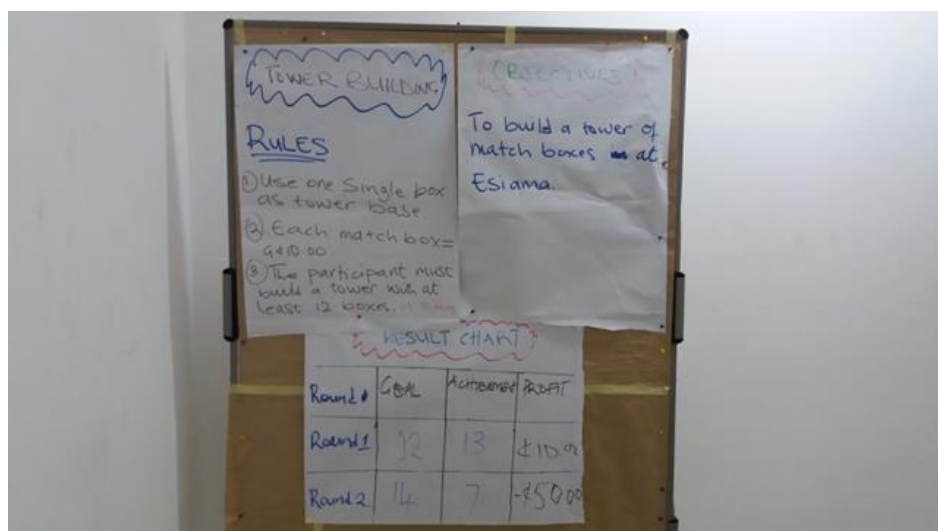 TOWER BUILDING
RULES
① Use one Single box
as tower base
② Each match box=
G¢10.00
③ The participant must
build a tower with at
least 12 boxes.
OBJECTIVES
To build a tower of
match boxes at
Esiama.
RESULT CHART
Round GOAL ACHIEVEMENT PROFIT
Round 1 12 13 ¢10.00
Round 2 14 7 -¢50.00